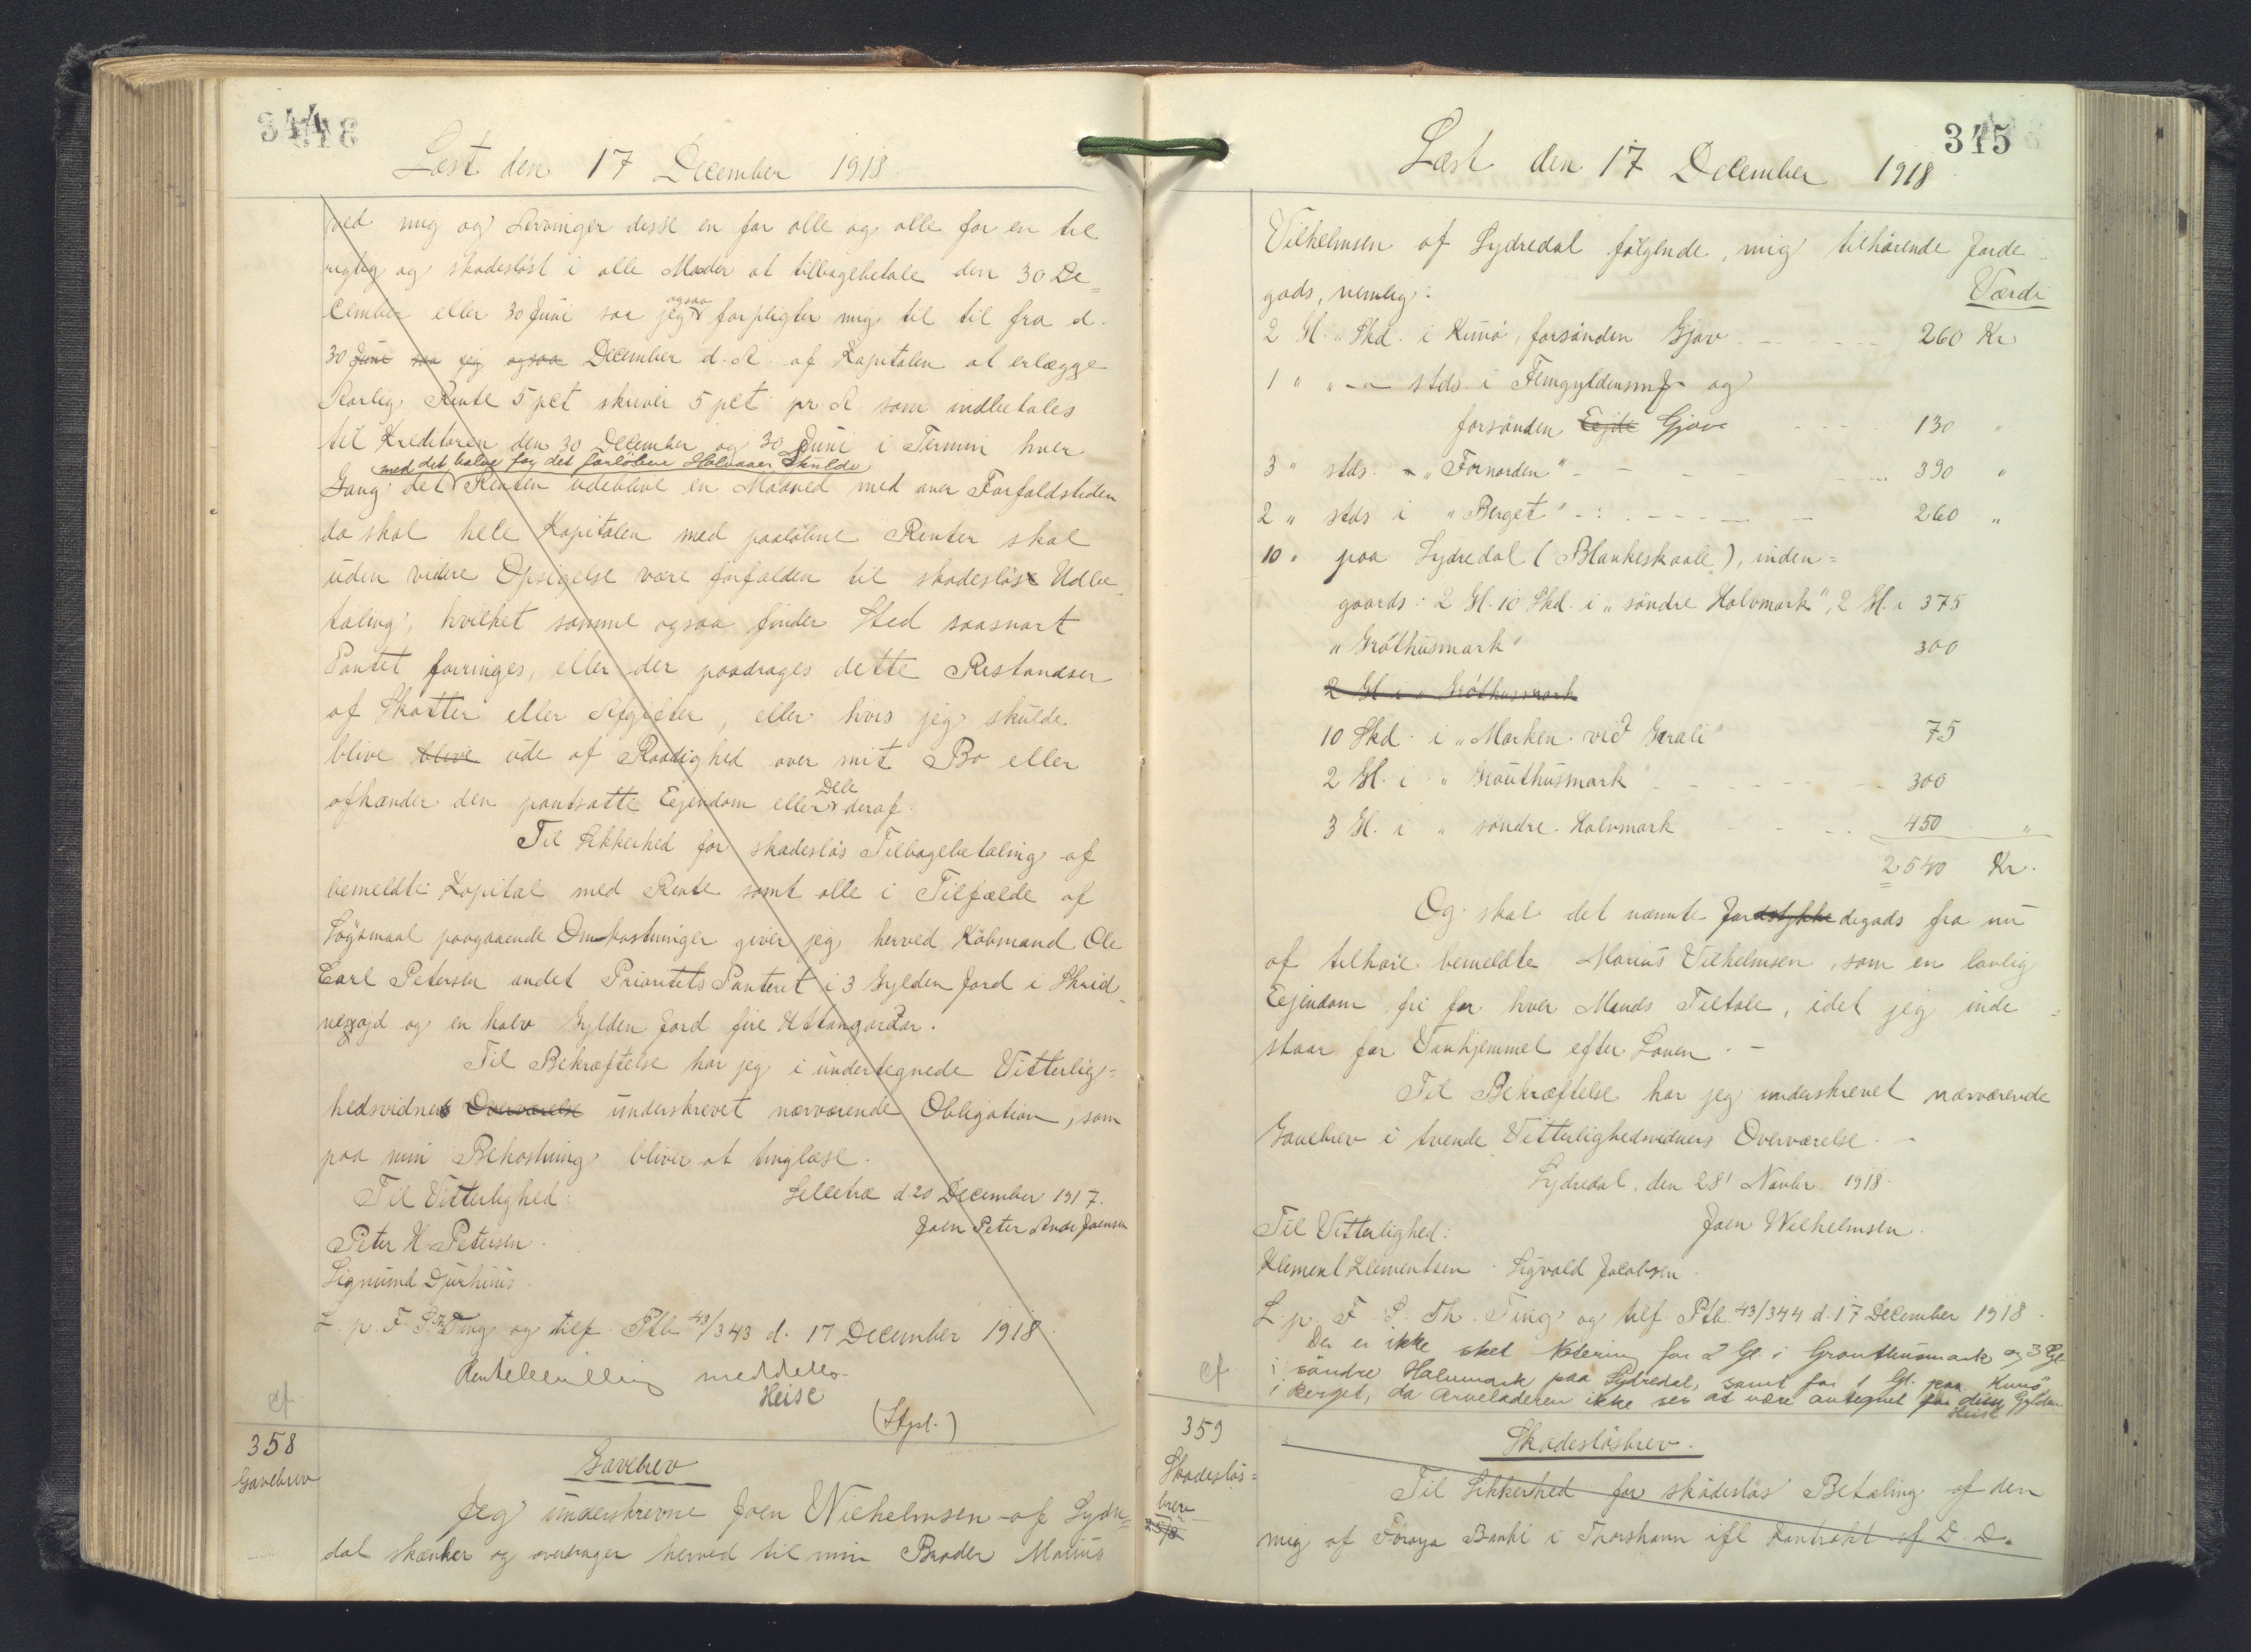 344
Læst den 17 December 1918.
ved mig og Arvinger disse en for alle og alle for en til
rigtig og skadesløst i alle Maader at tilbagebetale den 30 De=
cember eller 30 Juni saa jeg ogsaa forpligter mig til til fra d.
30 Juni saa jeg ogsaa December d. A. af Kapitalen at erlægge
Aarlig Rente 5 pct skriver 5 pct pr. A som indbetales
til Kreditoren den 30 December og 30 Juni i Termin hver
med det halve for det forløbne Halvaar Skulde
Gang det Renten udeblive en Maaned med over Forfaldstiden
da skal hele Kapitalen med paaløbne Renter skal
uden videre Opsigelse være forfalden til skadesløs Udbe=
taling, hvilket samme ogsaa finder Sted saasnart
Pantet forringes, eller der paadrages dette Restandser
af Skatter eller Afgifter, eller hvis jeg skulde
blive blive ude af Raadighed over mit Bo eller
afhænder den pantsatte Eejendom eller Dele deraf.
Til Sikkerhed for skadesløs Tilbagebetaling af
bemeldte Kapital med Rente samt alle i Tilfælde af
Søgsmaal paagaaende Omkostninger giver jeg herved Købmand Ole
Carl Petersen andet Prioritets Panteret i 3 Gylden Jord i Skrid=
og en halv Gylden Jord fire Uttangardar.
Til Bekræftelse har jeg i undertegnede Vitterlig=
hedsvidners Overværelse underskrevet nærværende Obligation, som
paa min Bekostning bliver at tinglæse.
Til Vitterlighed: Selletræ d. 20 December 1917.
Joen Peter Andr Joensen
Peter H. Petersen.
Sigmund Djurhuus.
L. p. F. S. Th. Ting og tilf. Ptb 43/343 d. 17 December 1918.
meddeles
Heise
(Stpl.)
cf.
358
Gavebrev
Gavebrev
Jeg underskrevne Joen Wilhelmsen af Sydre=
dal skænker og overdrager herved til min Broder Marius
345
Læst den 17 December 1918
Vilhelmsen af Sydredal følgende, mig tilhørende Jorde=
gods, nemlig: Værdi
2 Gl. " Skd. i Kunø, forsønden Gjov 260 Kr
1 " " - " - stds. i og
forsønden Eejde Gjov 130 "
3 " stds. - " Fornorden" 390 "
2 " stds i " Berget" 260 "
10 " paa Sydredal (Blankeskaale), inden=
gaards: 2 Gl. 10 Skd. i " søndre Halvmark", 2 Gl. i 375
" Gróthusmark" 300
2 Gl i " Gróthusmark
10 Skd. i " Marken við Garali" 75
2 Gl. i " Grouthusmark" 300
3 Gl. i " søndre Halvmark 450 "
2540 Kr.
Og skal det nævnte Jordstykke degods fra nu
af tilhøre bemeldte Marius Vilhelmsen, som en lovlig
Eejendom fri for hver Mands Tiltale, idet jeg inde=
staar for Vanhjemmel efter Loven. -
Til Bekræftelse har jeg underskrevet nærværende
Gavebrev i tvende Vitterlighedsvidners Overværelse. -
Sydredal, den 28' Novbr. 1918.
Til Vitterlighed: Joen Wilhelmsen.
Klement Klementsen. Sigvald Jacobsen.
L. p. F. S. Th. Ting og tilf. Ptb. 43/344 d. 17 December 1918.
Der er ikke sket Notering for 2 Gl. i Grouthusmark og 3 Gl.
i søndre Halvmark paa Sydredal, samt for 1 Gl. paa Kunø
i Berget, da Arveladeren ikke ses at være antegnet for disse Gylden
Heise
cf.
359
Skadesløs=
brev
Skadesløsbrev.
Til Sikkerhed for skadesløs Betaling af den
mig af Föroya Banki i Thorshavn ifl. Kontrakt af D. D.